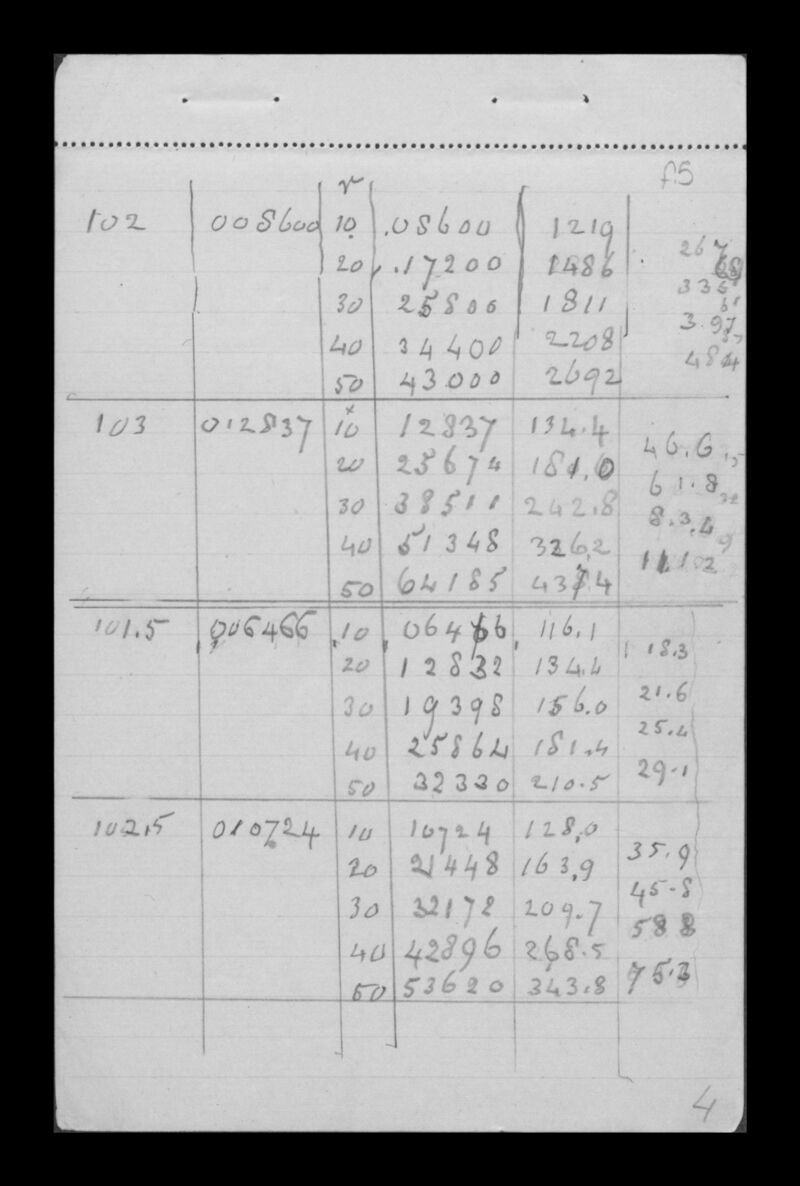 f.5
r
102 008600 10 .08600 1219
267
20 .17200 1486
68
30 25800 1811
3.97
40 34400 2208
484
50 43000 2692
103 012837 10 12837 134.4
46.6
20 25674 181.0
61.8
30 38511 242.8
8.3.4
40 51348 326.2
50 64185 4374
101.5 006466 10 06466 116.1
18.3
20 12832 134.4
21.6
30 19398 156.0
25.4
40 25864 181.4
29.1
50 32330 210.5
102.5 010724 10 10724 128.0
35.9
20 21448 163.9
45.8
30 32172 209.7
588
40 42896 268.5
75.3
50 53620 343.8
4